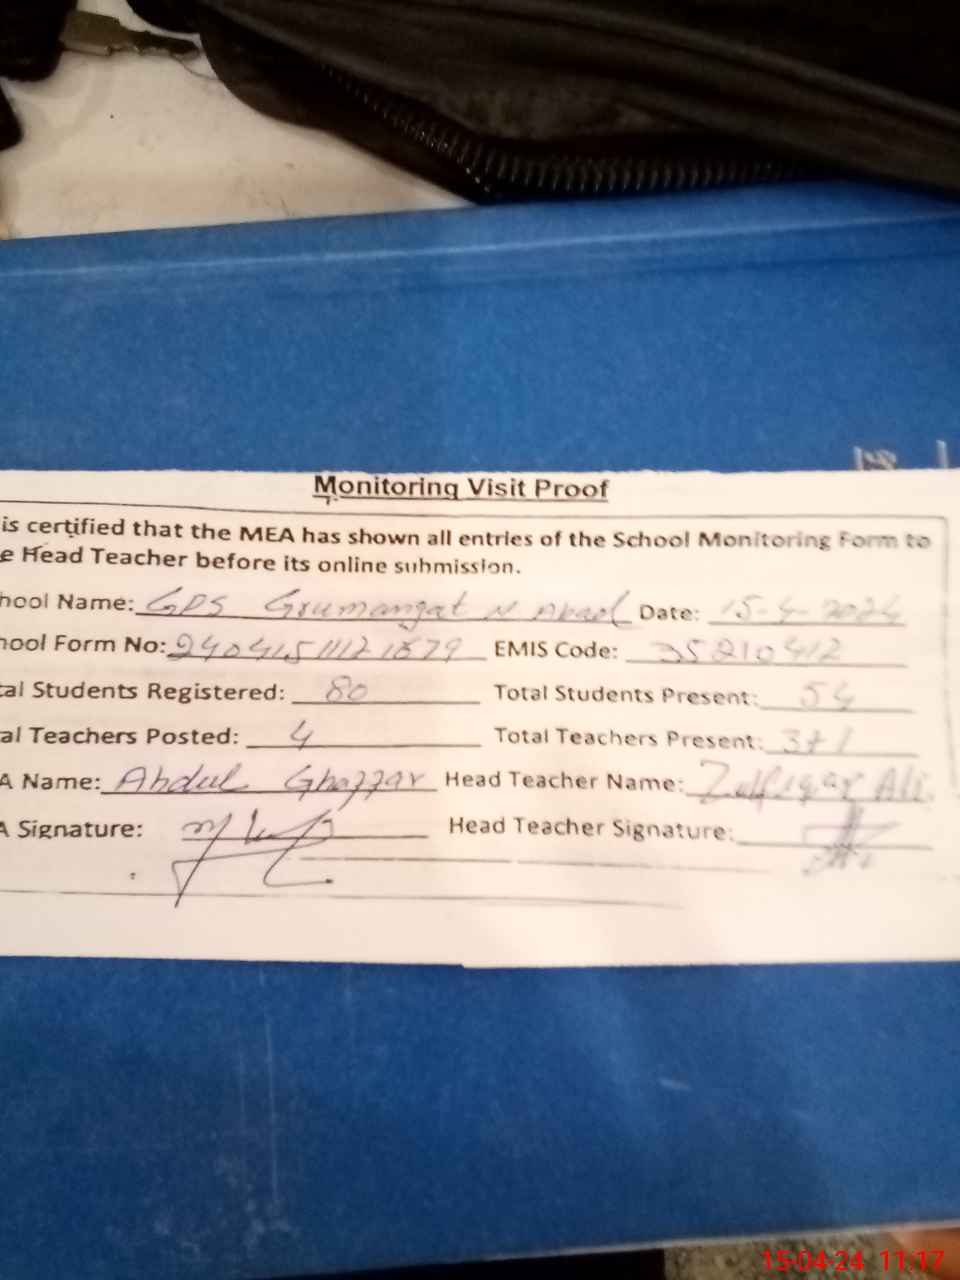 Monitoring Visit Proof
is certified that the MEA has shown all entries of the School Monitoring Form to
e Head Teacher before its online submission.
hool Name: GPS Grumangat N Abad Date: 15-4-2024
hool Form No: EMIS Code: 35210412
tal Students Registered: 80 Total Students Present: 54
al Teachers Posted: 4 Total Teachers Present: 3+1
A Name: Abdul Ghaffar Head Teacher Name: Zulfiqar Ali
A Signature: Head Teacher Signature:
15-04-24 11:17